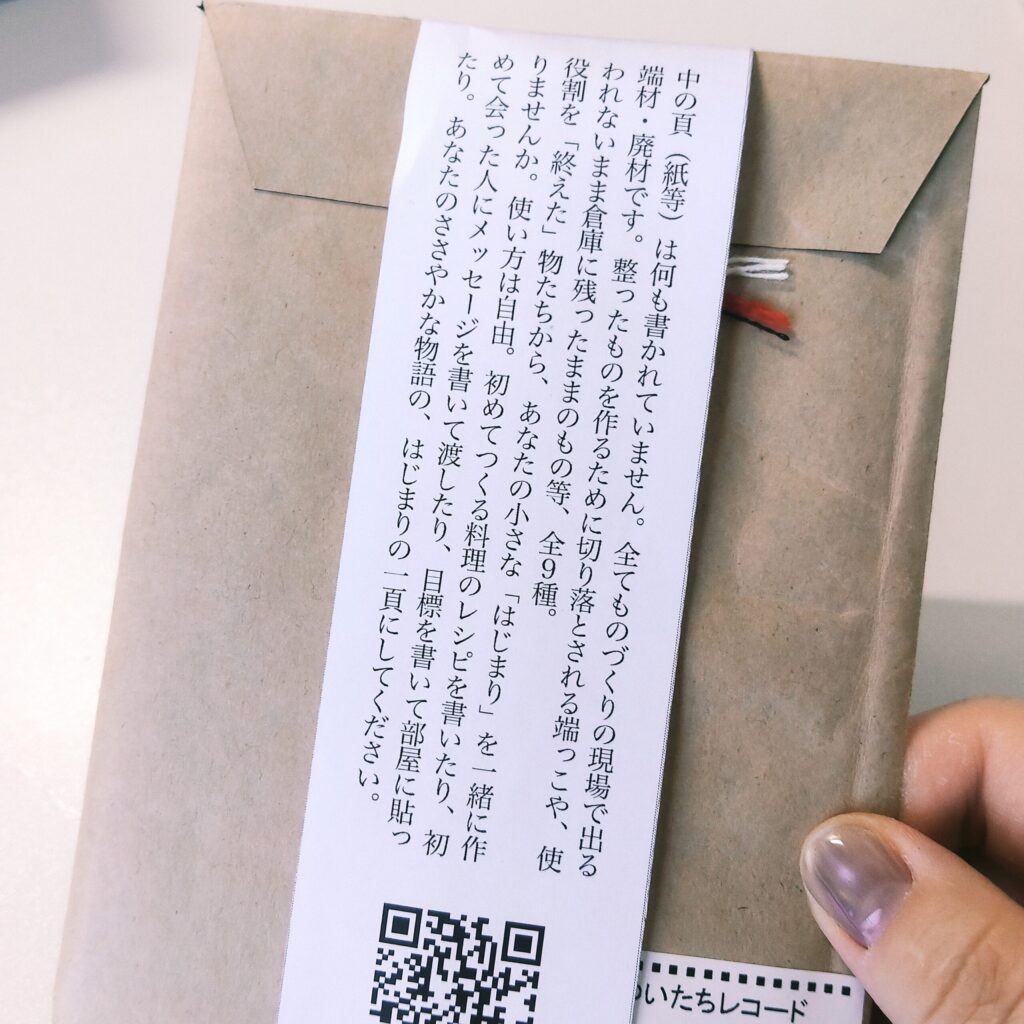 中の頁（紙等）は何も書かれていません。全てものづくりの現場で出る
端材・廃材です。整ったものを作るために切り落とされる端っこや、使
われないまま倉庫に残ったままのもの等、全9種。
役割を「終えた」物たちから、あなたの小さな「はじまり」を一緒に作
りませんか。使い方は自由。初めてつくる料理のレシピを書いたり、初
めて会った人にメッセージを書いて渡したり、目標を書いて部屋に貼っ
たり。あなたのささやかな物語の、はじまりの一頁にしてください。
いたちレコード